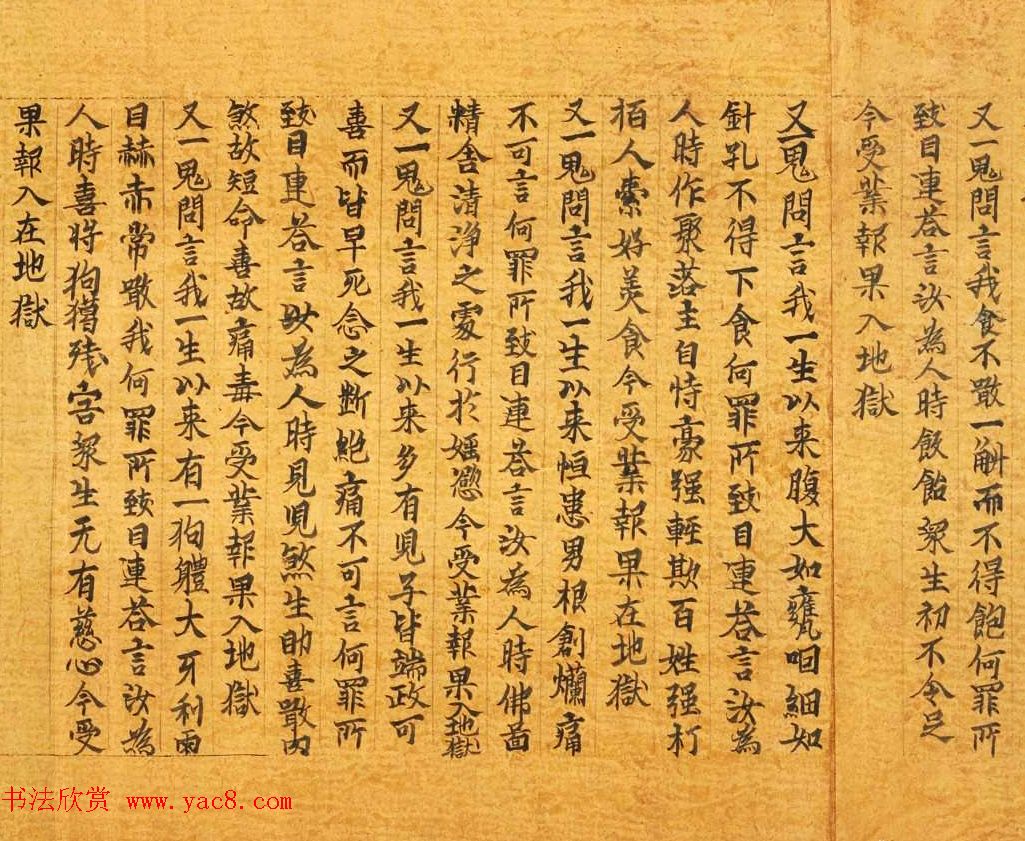 又一鬼問言我食不噉一斛而不得飽何罪所
致目連荅言汝為人時飲飴衆生初不令足
今受業報果入地獄
又一鬼問言我一生以来腹大如甕咽細如
針孔不得下食何罪所致目連荅言汝為
人時作聚落主自恃豪强輕欺百姓强打
栢人索好美食今受業報果在地獄
又一鬼問言我一生以来恒患男根創爛痛
不可言何罪所致目連荅言汝為人時佛啚
精舍清浄之處行於婬慾今受業報果入地獄
又一鬼問言我一生以来多有兒子皆端政可
喜而皆早死念之断絶痛不可言何罪所
致目連荅言汝為人時見兒煞生助喜噉肉
煞故短命喜故痛毒今受業報果入地獄
又一鬼問言我一生以来有一狗體大牙利兩
目赫赤常噉我何罪所致目連荅言汝為
人時喜將狗獵残害衆生无有慈心今受
果報入在地獄
书法欣赏 www.yac8.com